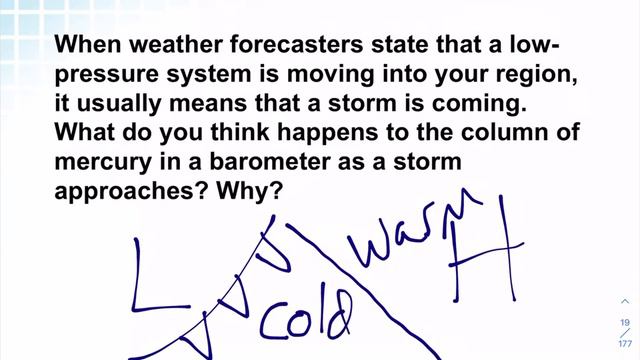 When weather forecasters state that a low-
pressure system is moving into your region,
it usually means that a storm is coming.
What do you think happens to the column of
mercury in a barometer as a storm
approaches? Why?
warm
L H
cold
19
177